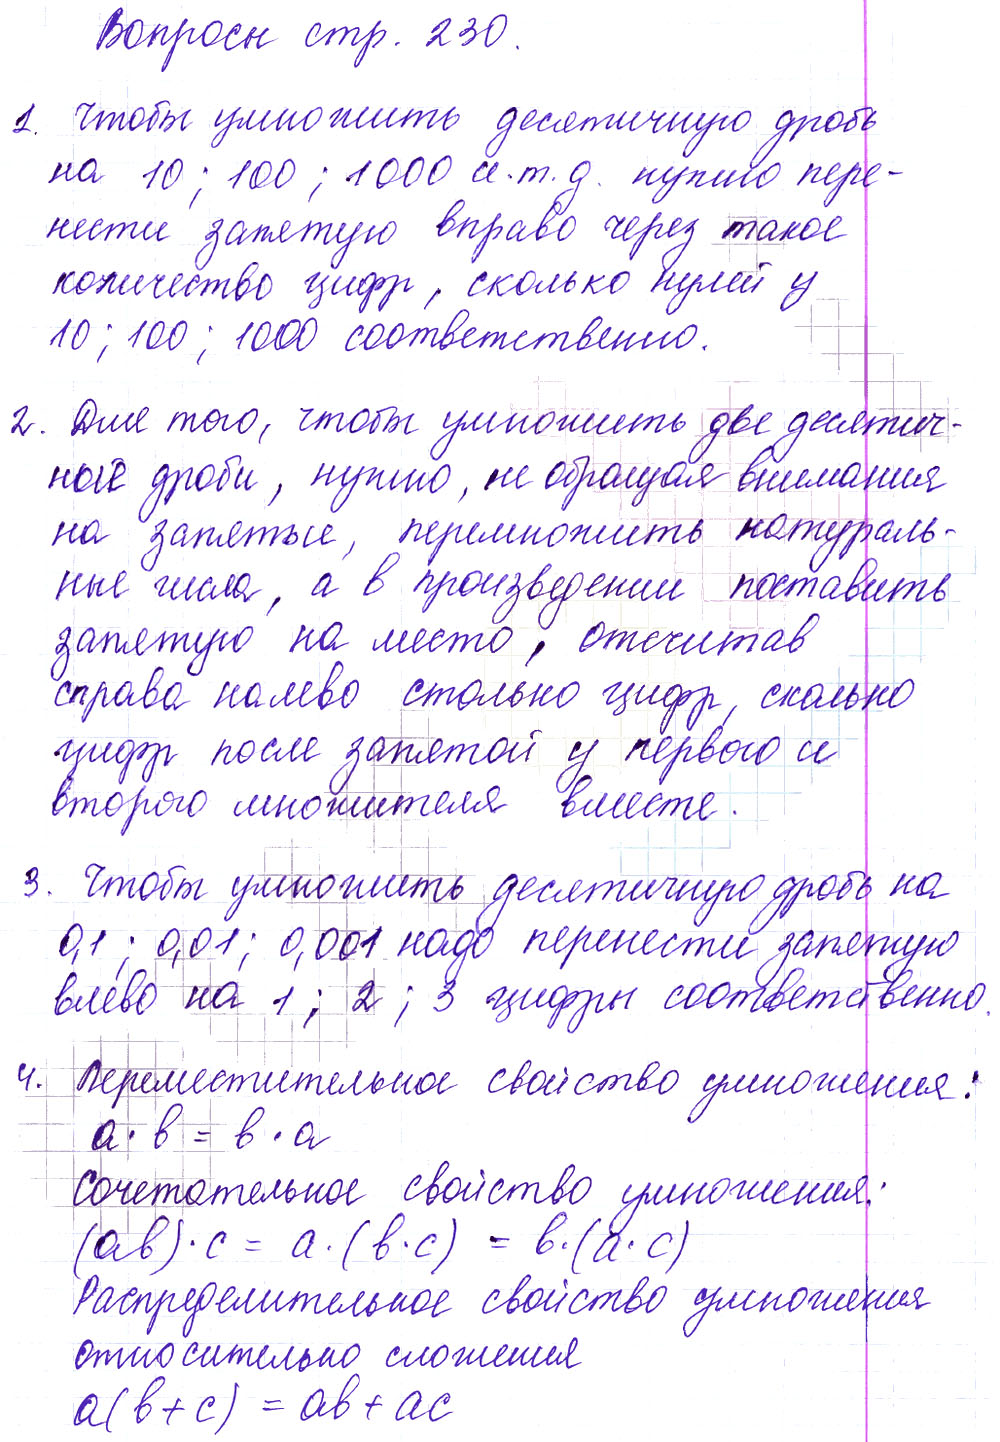 Вопросы стр. 230.
1. Чтобы умножить десятичную дробь
на 10; 100; 1000 и.т.д. нужно пере-
нести запятую вправо через такое
количество цифр, сколько нулей у
10; 100; 1000 соответственно.
2. Для того, чтобы умножить две десятич-
ные дроби, нужно, не обращая внимания
на запятые, перемножить натураль-
ные числа, а в произведении поставить
запятую на место, отсчитав
справа налево столько цифр, сколько
цифр после запятой у первого и
второго множителя вместе.
3. Чтобы умножить десятичную дробь на
0,1; 0,01; 0,001 надо перенести запятую
влево на 1; 2; 3 цифры соответственно.
4. Переместительное свойство умножения:
а · в = в · а
Сочетательное свойство умножения:
(ав) · с = а · (в · с) = в · (а · с)
Распределительное свойство умножения
относительно сложения
а(в+с) = ав + ас